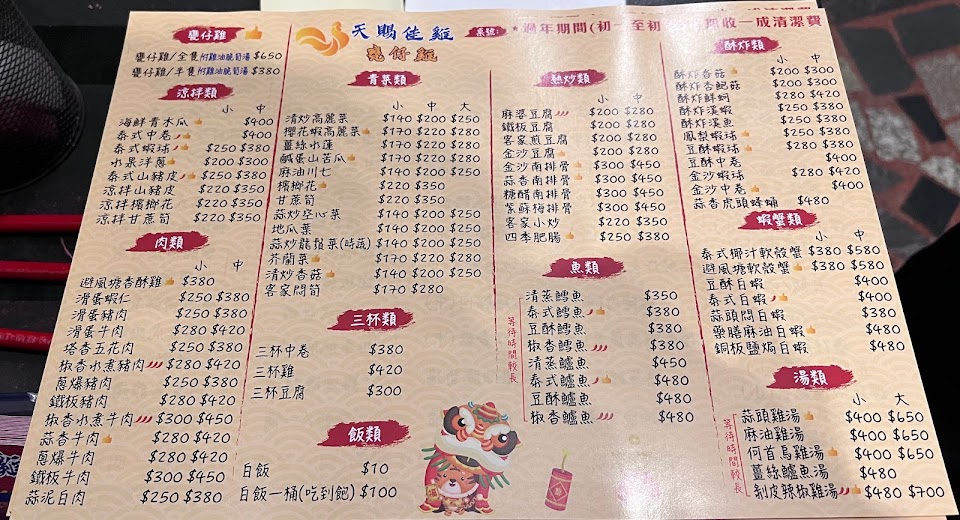 甕仔雞
甕仔雞/全隻 附雞油脆筍湯 $650
甕仔雞/半隻 附雞油脆筍湯 $380
涼拌類
小 中
海鮮青木瓜 $400
泰式中卷 $400
泰式蝦球 $250 $380
水果洋蔥 $200 $300
泰式山豬皮 $250 $380
涼拌山豬皮 $220 $350
涼拌檳榔花 $220 $350
涼拌甘蔗筍 $220 $350
肉類
小 中
避風塘香酥雞 $380
滑蛋蝦仁 $250 $380
滑蛋豬肉 $250 $380
滑蛋牛肉 $280 $420
塔香五花肉 $250 $380
椒香水煮豬肉 $280 $420
蔥爆豬肉 $250 $380
鐵板豬肉 $280 $420
椒香水煮牛肉 $300 $450
蒜香牛肉 $280 $420
蔥爆牛肉 $280 $420
鐵板牛肉 $300 $450
蒜泥白肉 $250 $380
天賜徒雞
甕仔雞
桌號:
★過年期間(初一至初
收一成清潔費
青菜類
小 中 大
清炒高麗菜 $140 $200 $250
櫻花蝦高麗菜 $170 $220 $280
薑絲水蓮 $170 $220 $280
鹹蛋山苦瓜 $170 $220 $280
麻油川七 $140 $200 $250
檳榔花 $220 $350
甘蔗筍 $220 $350
蒜炒空心菜 $140 $200 $250
地瓜葉 $140 $200 $250
蒜炒龍鬚菜(時蔬) $140 $200 $250
芥蘭菜 $170 $220 $280
清炒香菇 $140 $200 $250
客家悶筍 $170 $280
三杯類
三杯中卷 $380
三杯雞 $420
三杯豆腐 $300
飯類
白飯 $10
白飯一桶(吃到飽) $100
熱炒類
小 中
麻婆豆腐 $200 $280
鐵板豆腐 $200 $280
客家煎豆腐 $200 $280
金沙豆腐 $200 $280
金沙南排骨 $300 $450
蒜香南排骨 $300 $450
糖醋南排骨 $300 $450
紫蘇梅排骨 $300 $450
客家小炒 $220 $350
四季肥腸 $250 $380
魚類
等待時間較長
清蒸鱈魚 $350
泰式鱈魚 $380
豆酥鱈魚 $380
椒香鱈魚 $380
清蒸鱸魚 $450
泰式鱸魚 $480
豆酥鱸魚 $480
椒香鱸魚 $480
酥炸類
小 中
酥炸杏菇 $200 $300
酥炸杏鮑菇 $200 $300
酥炸鮮蚵 $280 $420
酥炸溪蝦 $250 $380
酥炸溪魚 $250 $380
鳳梨蝦球 $250 $380
豆酥蝦球 $280 $380
豆酥中卷 $400
金沙蝦球 $280 $420
金沙中卷 $400
蒜香虎頭蜂蛹 $480
蝦蟹類
泰式椰汁軟殼蟹 $380 $580
避風塘軟殼蟹 $380 $580
豆酥白蝦 $400
泰式白蝦 $400
蒜茸悶白蝦 $380
藥膳麻油白蝦 $480
銅板鹽焗白蝦 $480
湯類
小 大
等待時間較長
蒜頭雞湯 $400 $650
麻油雞湯 $400 $650
何首烏雞湯 $400 $650
薑絲鱸魚湯 $480
剝皮辣椒雞湯 $480 $700